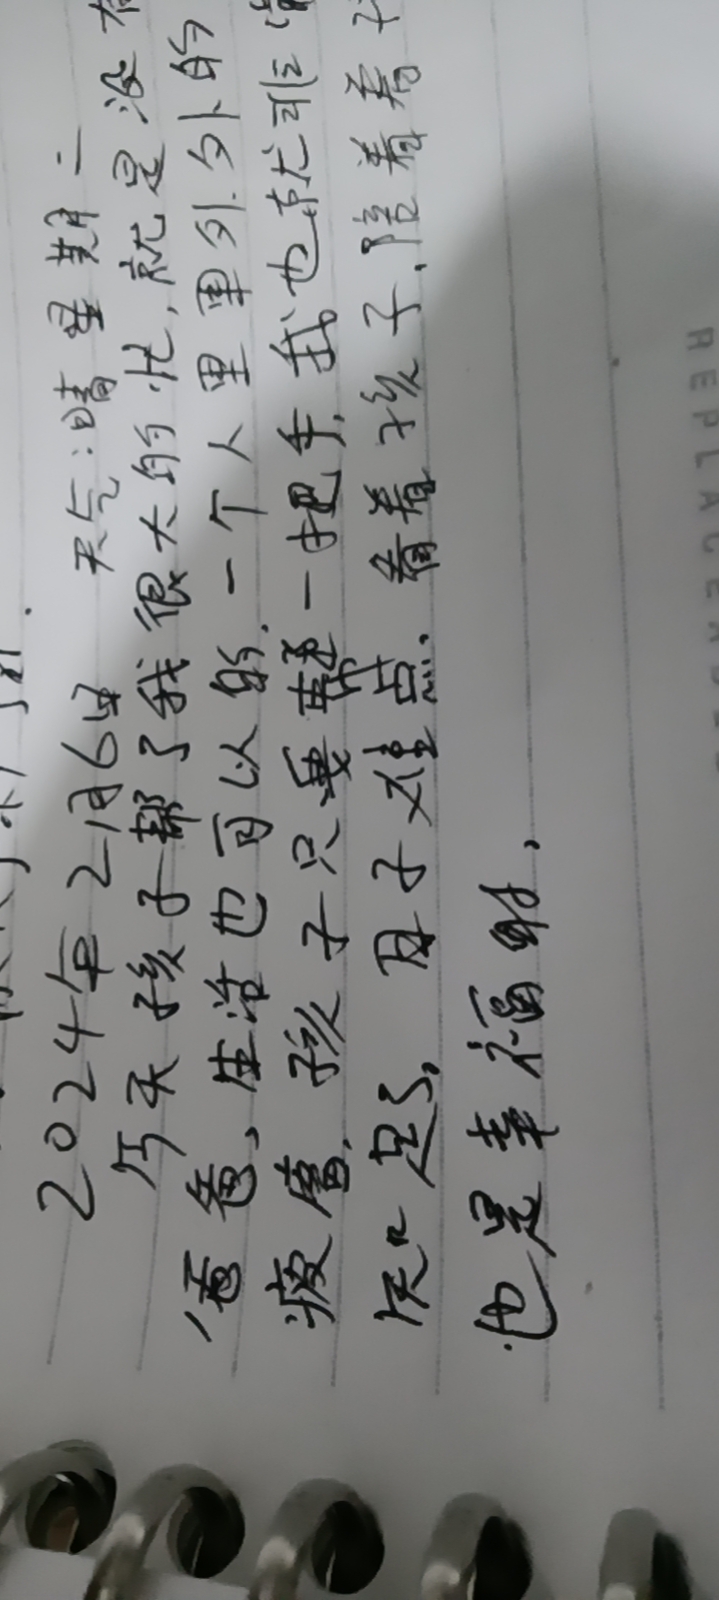 2024年2月6日 天气:晴 星期二
今天孩子帮了我很大的忙,就是没有
爸爸、生活也可以的.一个人里里外外的
疲惫.孩子只要帮一把手.我也就非常
知足了. 母子难点.看着孩子.陪着看着
也是幸福的.
REPLACEAB